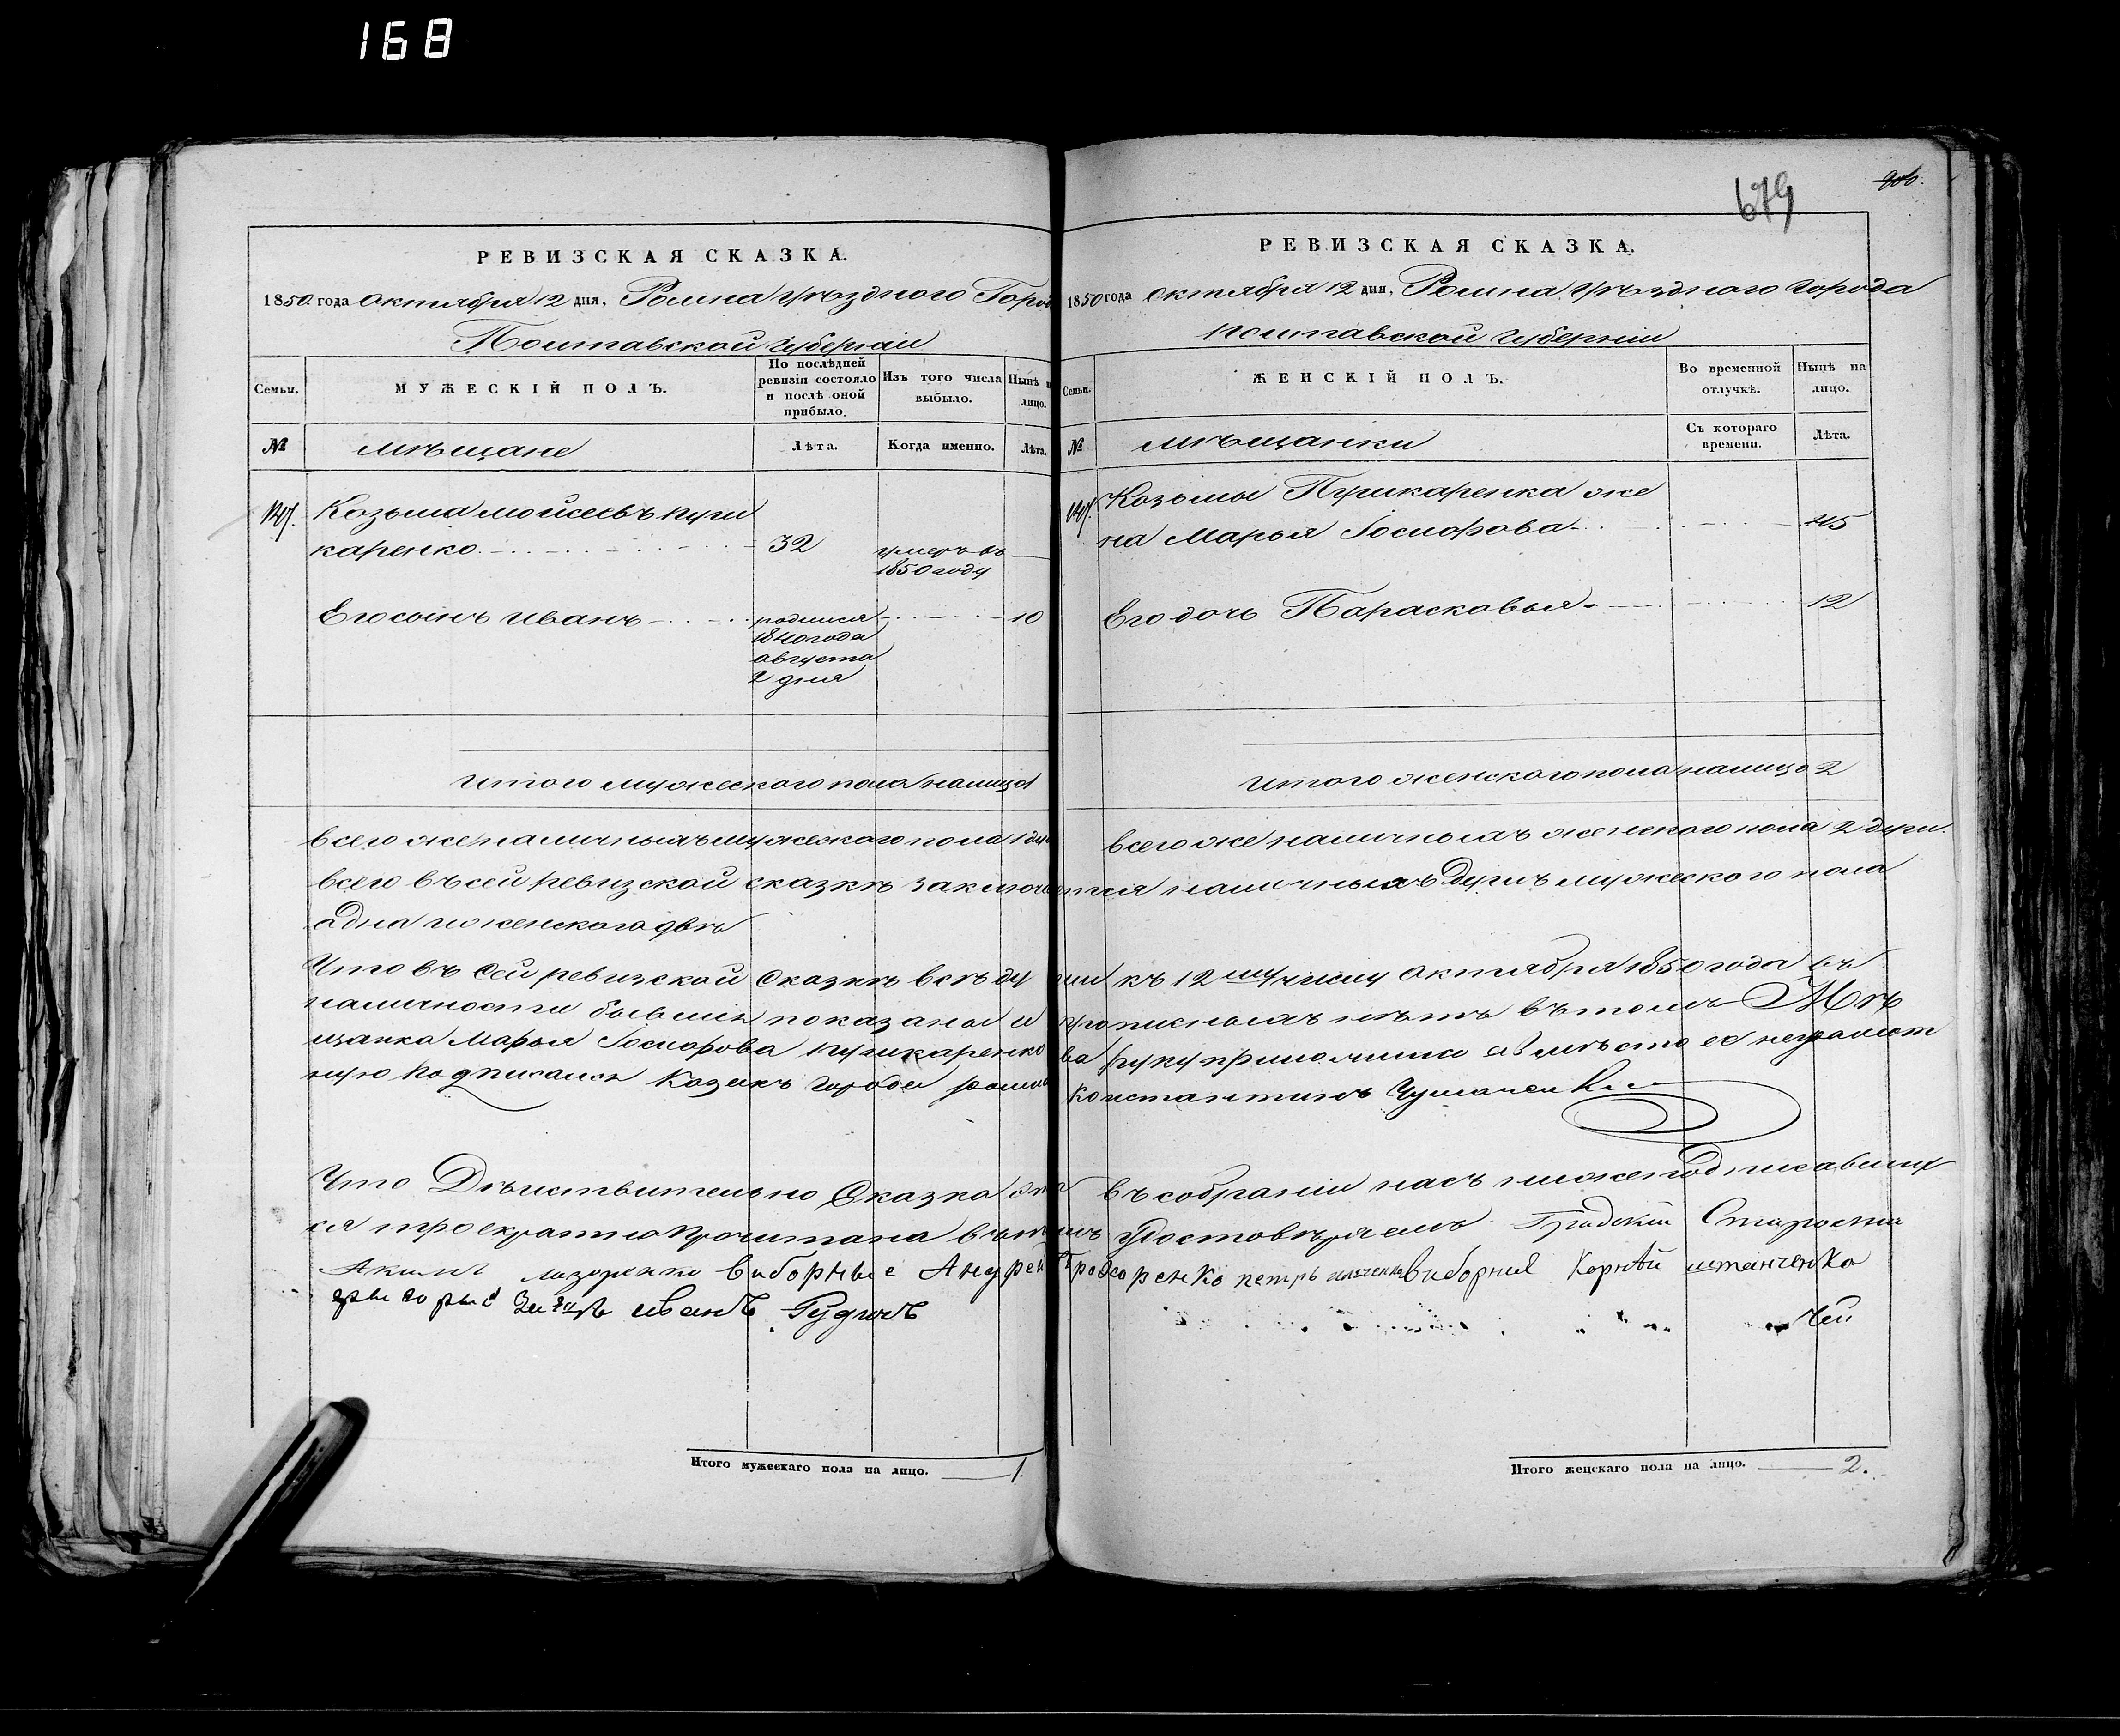 168
РЕВИЗСКАЯ СКАЗКА.
1850 года октября 12 дня, Ромна Уѣзднаго Горо
Полтавской губерніи
Семьи.
МУЖЕСКІЙ ПОЛЪ.
По послѣдней ревизіи состояло и послѣ оной прибыло.
Изъ того числа выбыло.
Нынѣ на лицо.
№
мѣщане
Лѣта.
Когда именно.
Лѣта.
Козьма мойсеевъ пуш
каренко
32
умеръ въ
1850 году
Его сынъ иванъ
родился
1840 года
августа
2 дня
10
Итого мужескаго пола налицо 1
всего же наличныхъ мужескаго пола 1 душ
всего въ сей ревизской сказкѣ заключ
адна и женскаго двѣ
Что въ сей ревизской сказкѣ всѣ ду
наличности бывшия показаны и
щанка Марья Іосифова пушкаренко
ную подписался Козакъ города ромна
Что Дѣйствительно Сказка
ся троекратно прочитана в
Акимъ лазоренко виборные Андрей
иванъ Гудимъ
Итого мужескаго пола на лицо. 1.
679
906.
РЕВИЗСКАЯ СКАЗКА.
1850 года октября 12 дня, Ромна Уѣзднаго города
полтавской губерніи
Семьи.
ЖЕНСКІЙ ПОЛЪ.
Во временной отлучкѣ.
Нынѣ на лицо.
№
мѣщанки
Съ котораго времени.
Лѣта.
Козьмы Пушкаренка же
на Марья Іосифова
45
Его дочь Парасковья
12
Итого женскаго пола налицо 2
всего же наличныхъ женскаго пола 2 души.
ется наличныхъ Душъ мужескаго пола
ши къ 12 му числу октября 1850 года въ
прописныхъ нѣтъ въ томъ Мѣ
ва руку приложила а вмѣсто ее неграмот
Константинъ Чумаченко
въ собраніи насъ нижеподписавших
Удостовѣряемъ Градскій Староста
петръ виборній Корнѣй штанченко
Итого женскаго пола на лицо. 2.